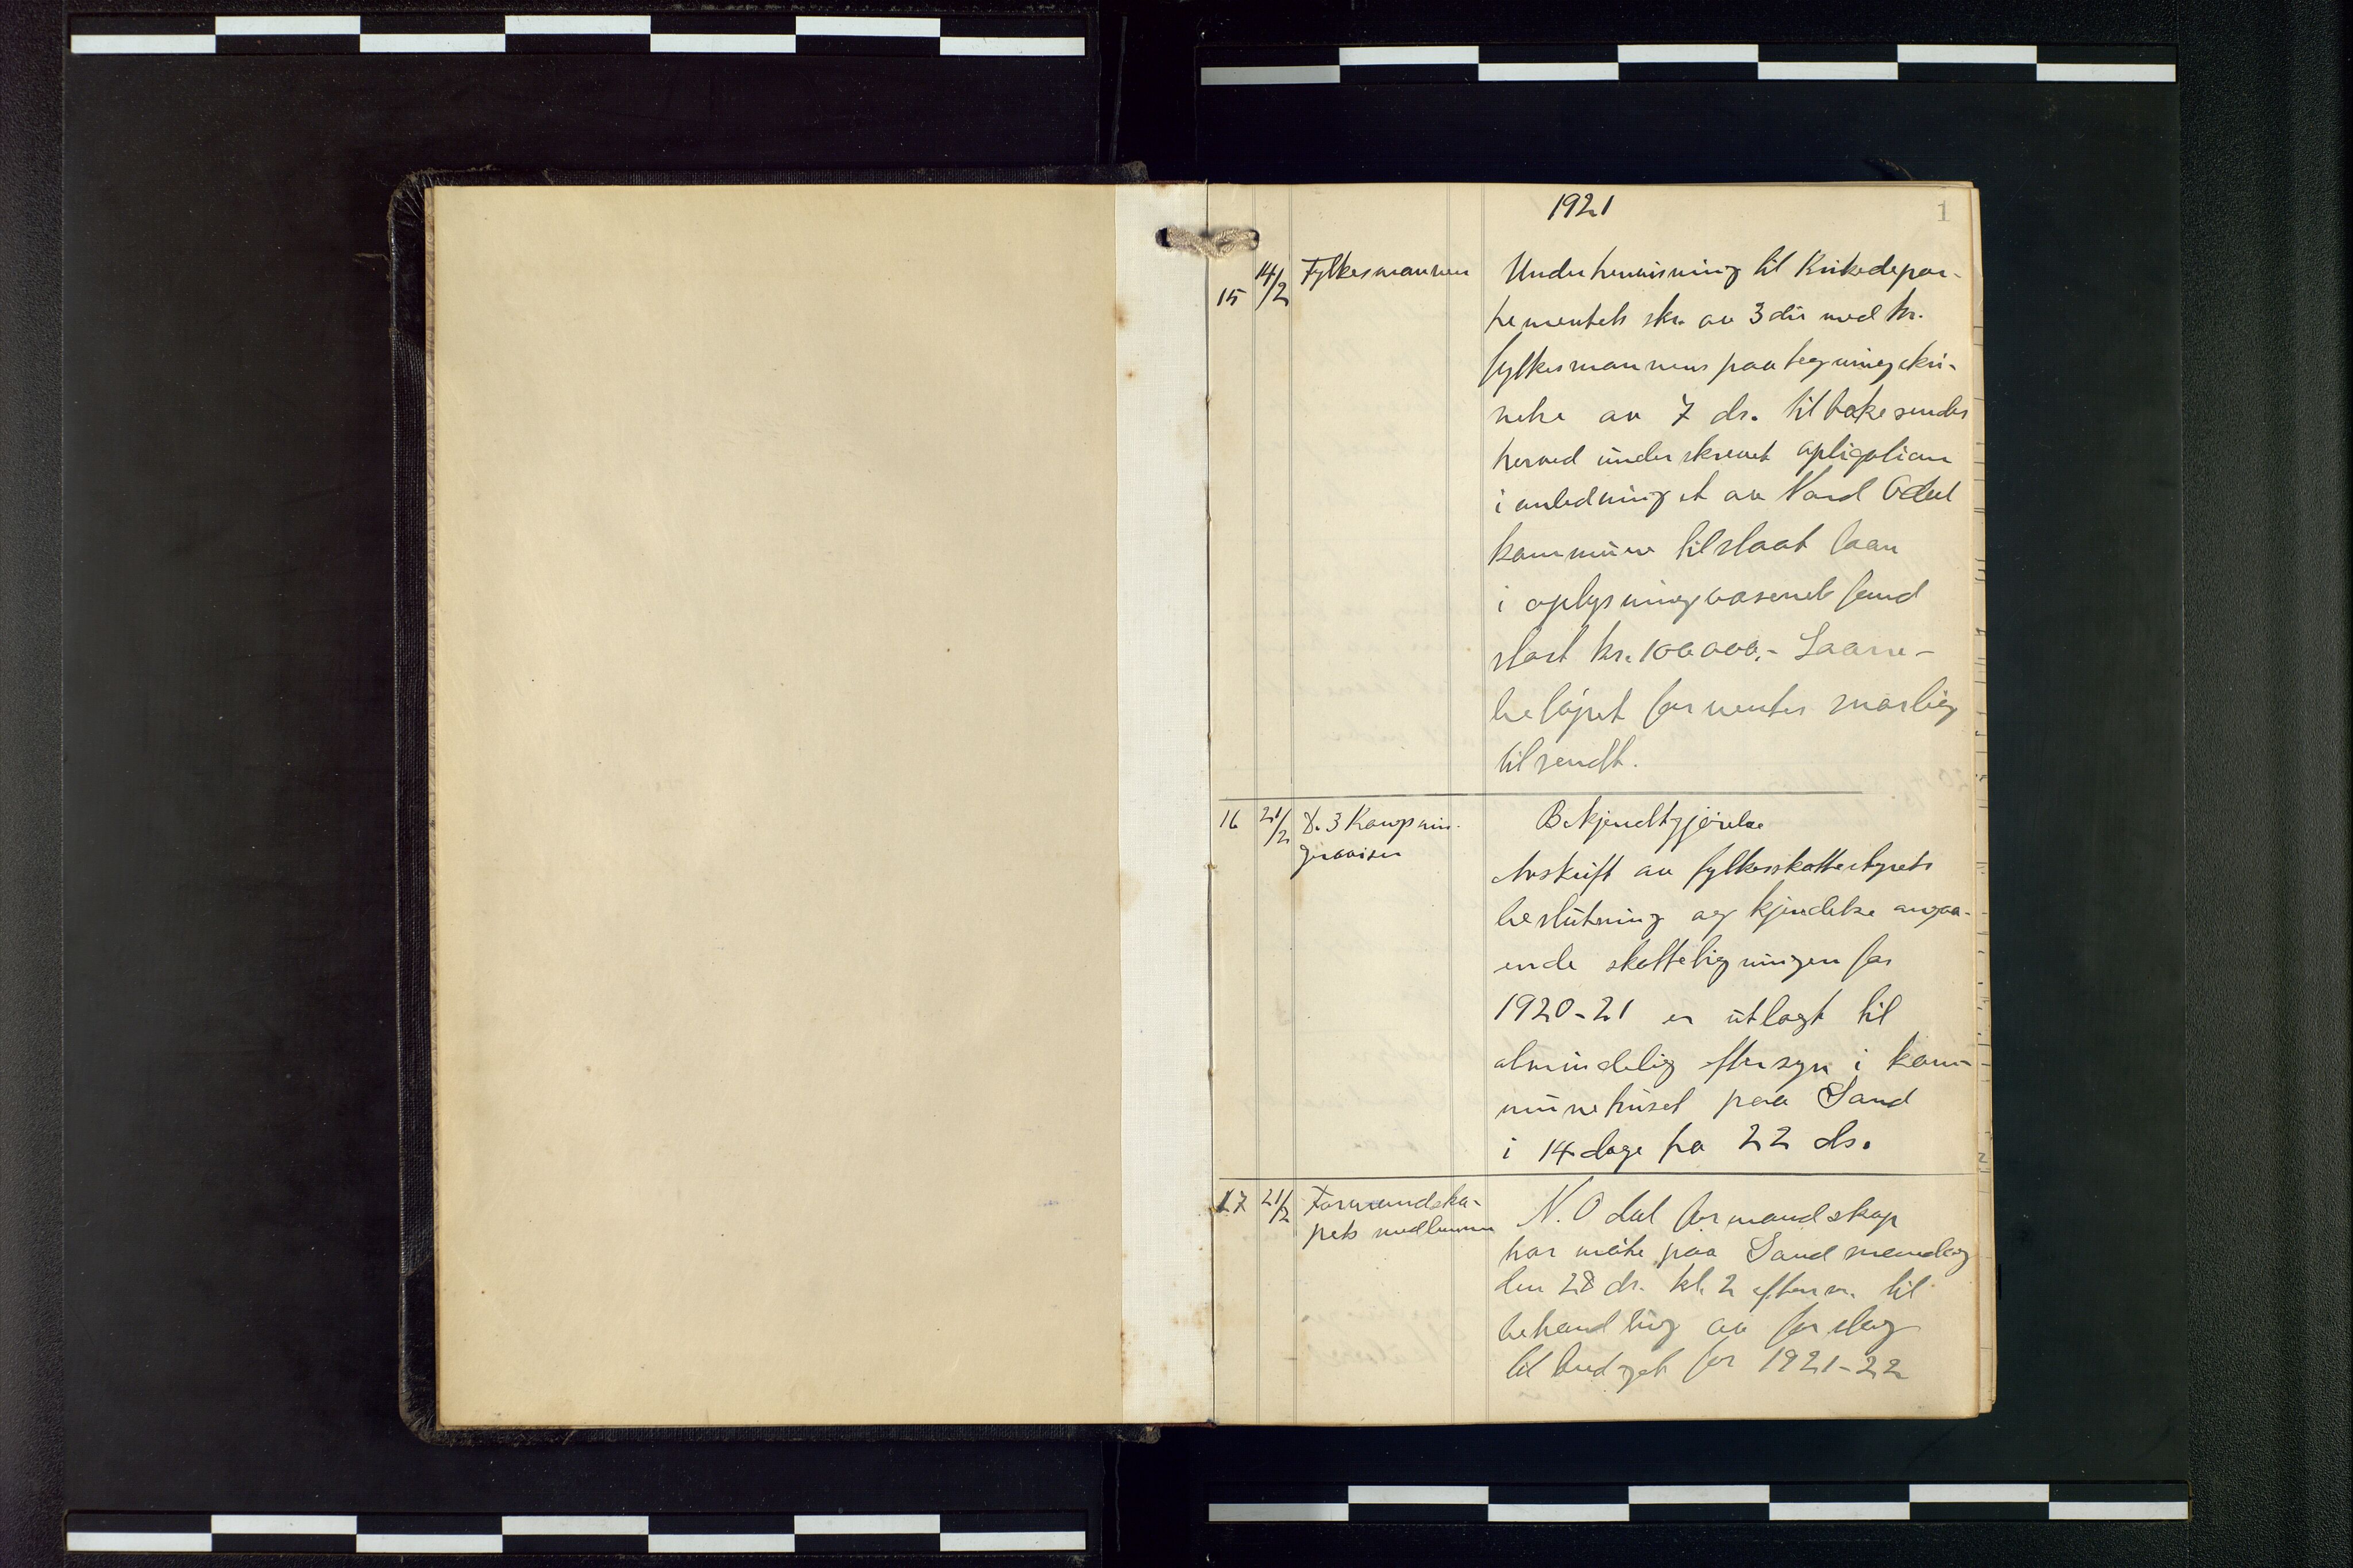 1921
1
15
14/2
Fylkesmannen
Under henvisning til Kirkedepar-
tementets skr. av 3 ds med hr.
fylkesmannens paategningskri-
velse av 7 ds. tilbakesendes
herved underskrevet opligation
i anledning et av Nord Odal
kommune tilstaat laan
i oplysningvæsenets fond
stort kr. 100000,- Laane-
beløpet forventes snarlig
tilsendt.
16
21/2
D. 3 Kongsvin-
geraviser
Bekjendtgjørelse
Avskrift av fylkesskattestyrets
beslutning og kjendelse angaa-
ende skatteligningen for
1920-21 er utlagt til
almindelig eftersyn i kom-
munehuset paa Sand
i 14 dage fra 22 ds.
17
21/2
Formandska-
pets medlemmer
N. Odal formandskap
har møte paa Sand mandag
den 28 ds. kl. 2 efterm. til
behandling av forslag
til budget for 1921-22